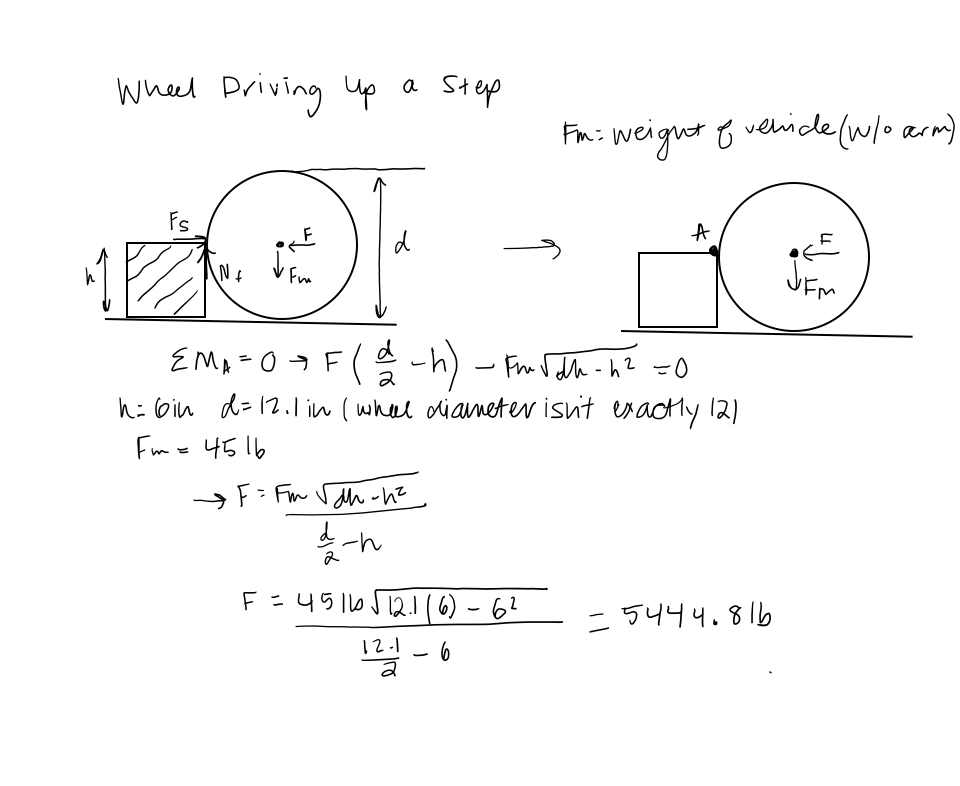 Wheel Driving Up a Step
Fm = weight of vehicle (w/o arm)
Fs
F
Fm
Nf
h
d
A
F
Fm
ΣM_A = 0 → F (d/2 - h) - Fm √(dh - h²) = 0
h = 6 in d = 12.1 in (wheel diameter isn't exactly 12)
Fm = 45 lb
→ F = Fm √(dh - h²) / (d/2 - h)
F = 45 lb √(12.1(6) - 6²) / (12.1/2 - 6) = 5444.8 lb